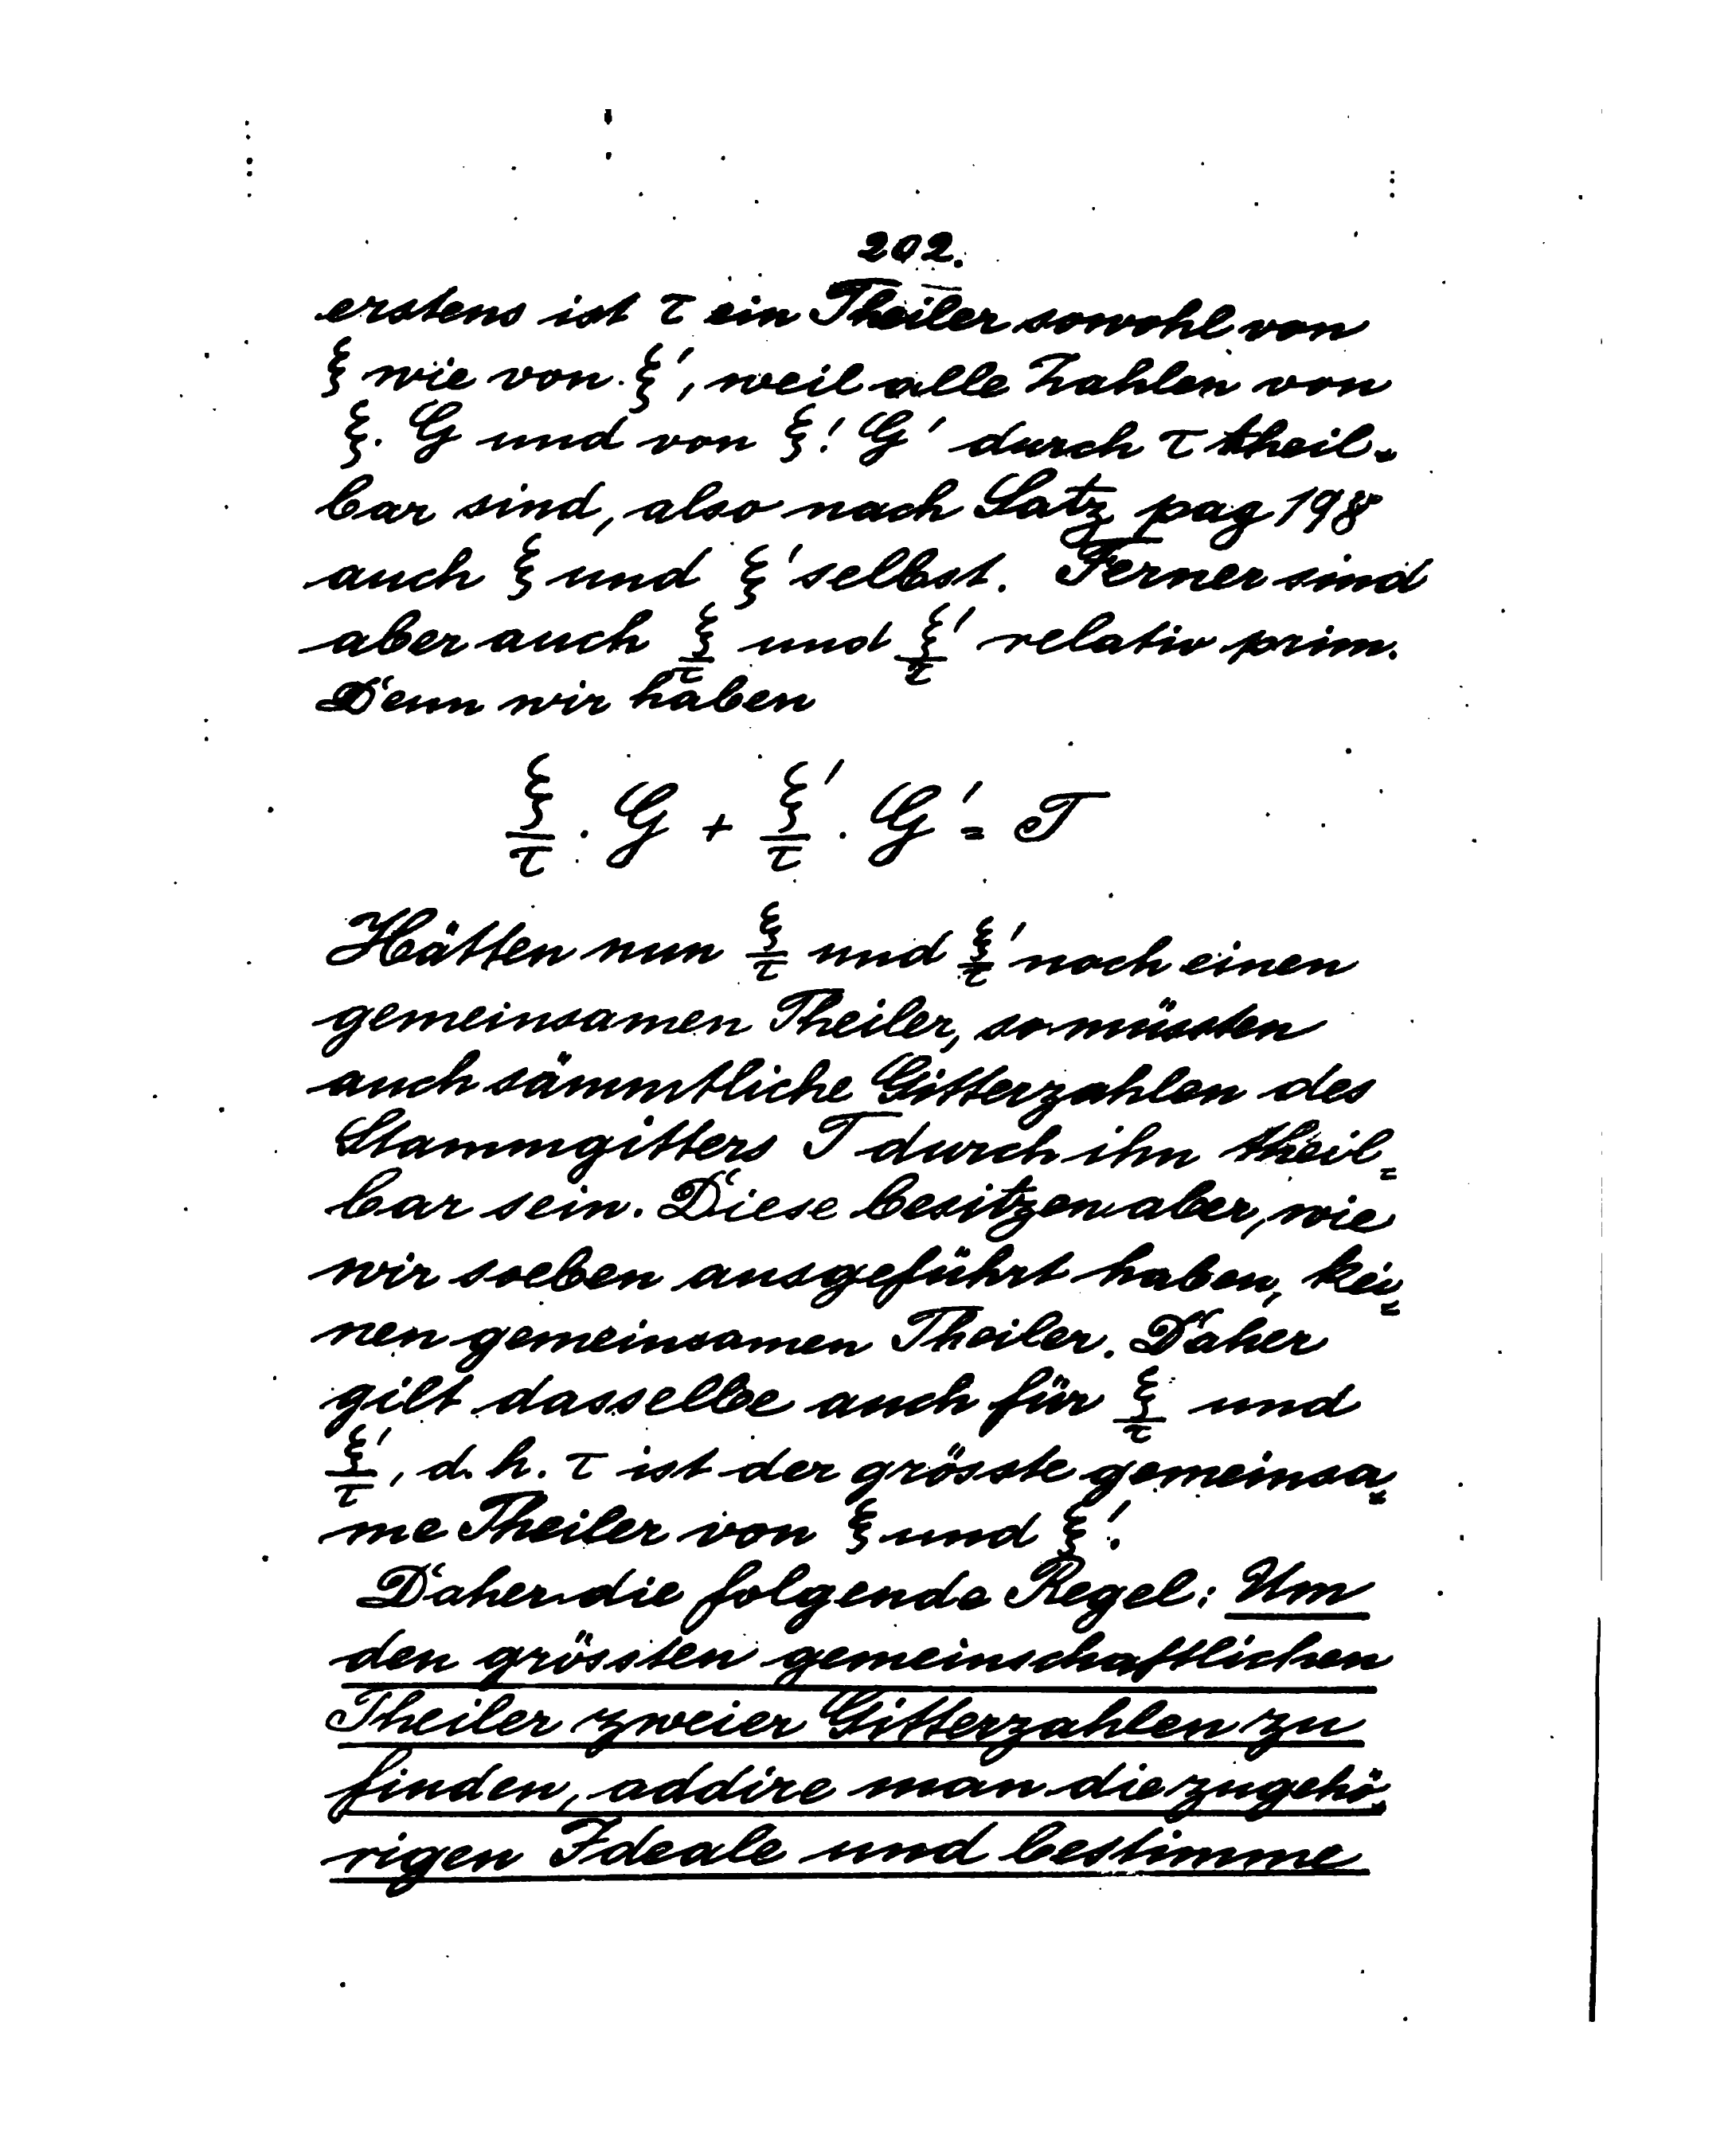 202.
erstens ist τ ein Theiler sowohl von
ξ wie von ξ', weil alle Zahlen von
ξ. G und von ξ'. G' durch τ theil-
bar sind, also nach Satz pag 198
auch ξ und ξ' selbst. Ferner sind
aber auch ξ/τ und ξ'/τ relativ prim.
Denn wir haben
ξ/τ . G + ξ'/τ . G' = T
Hätten nun ξ/τ und ξ'/τ noch einen
gemeinsamen Theiler, so müssten
auch sämmtliche Gitterzahlen des
Stammgitters T durch ihn theil=
bar sein. Diese besitzen aber, wie
wir soeben ausgeführt haben, kei=
nen gemeinsamen Theiler. Daher
gilt dasselbe auch für ξ/τ und
ξ'/τ, d. h. τ ist der grösste gemeinsa=
me Theiler von ξ und ξ'.
Daher die folgende Regel: Um
den grössten gemeinschaftlichen
Theiler zweier Gitterzahlen zu
finden, addire man die zugehö=
rigen Ideale und bestimme